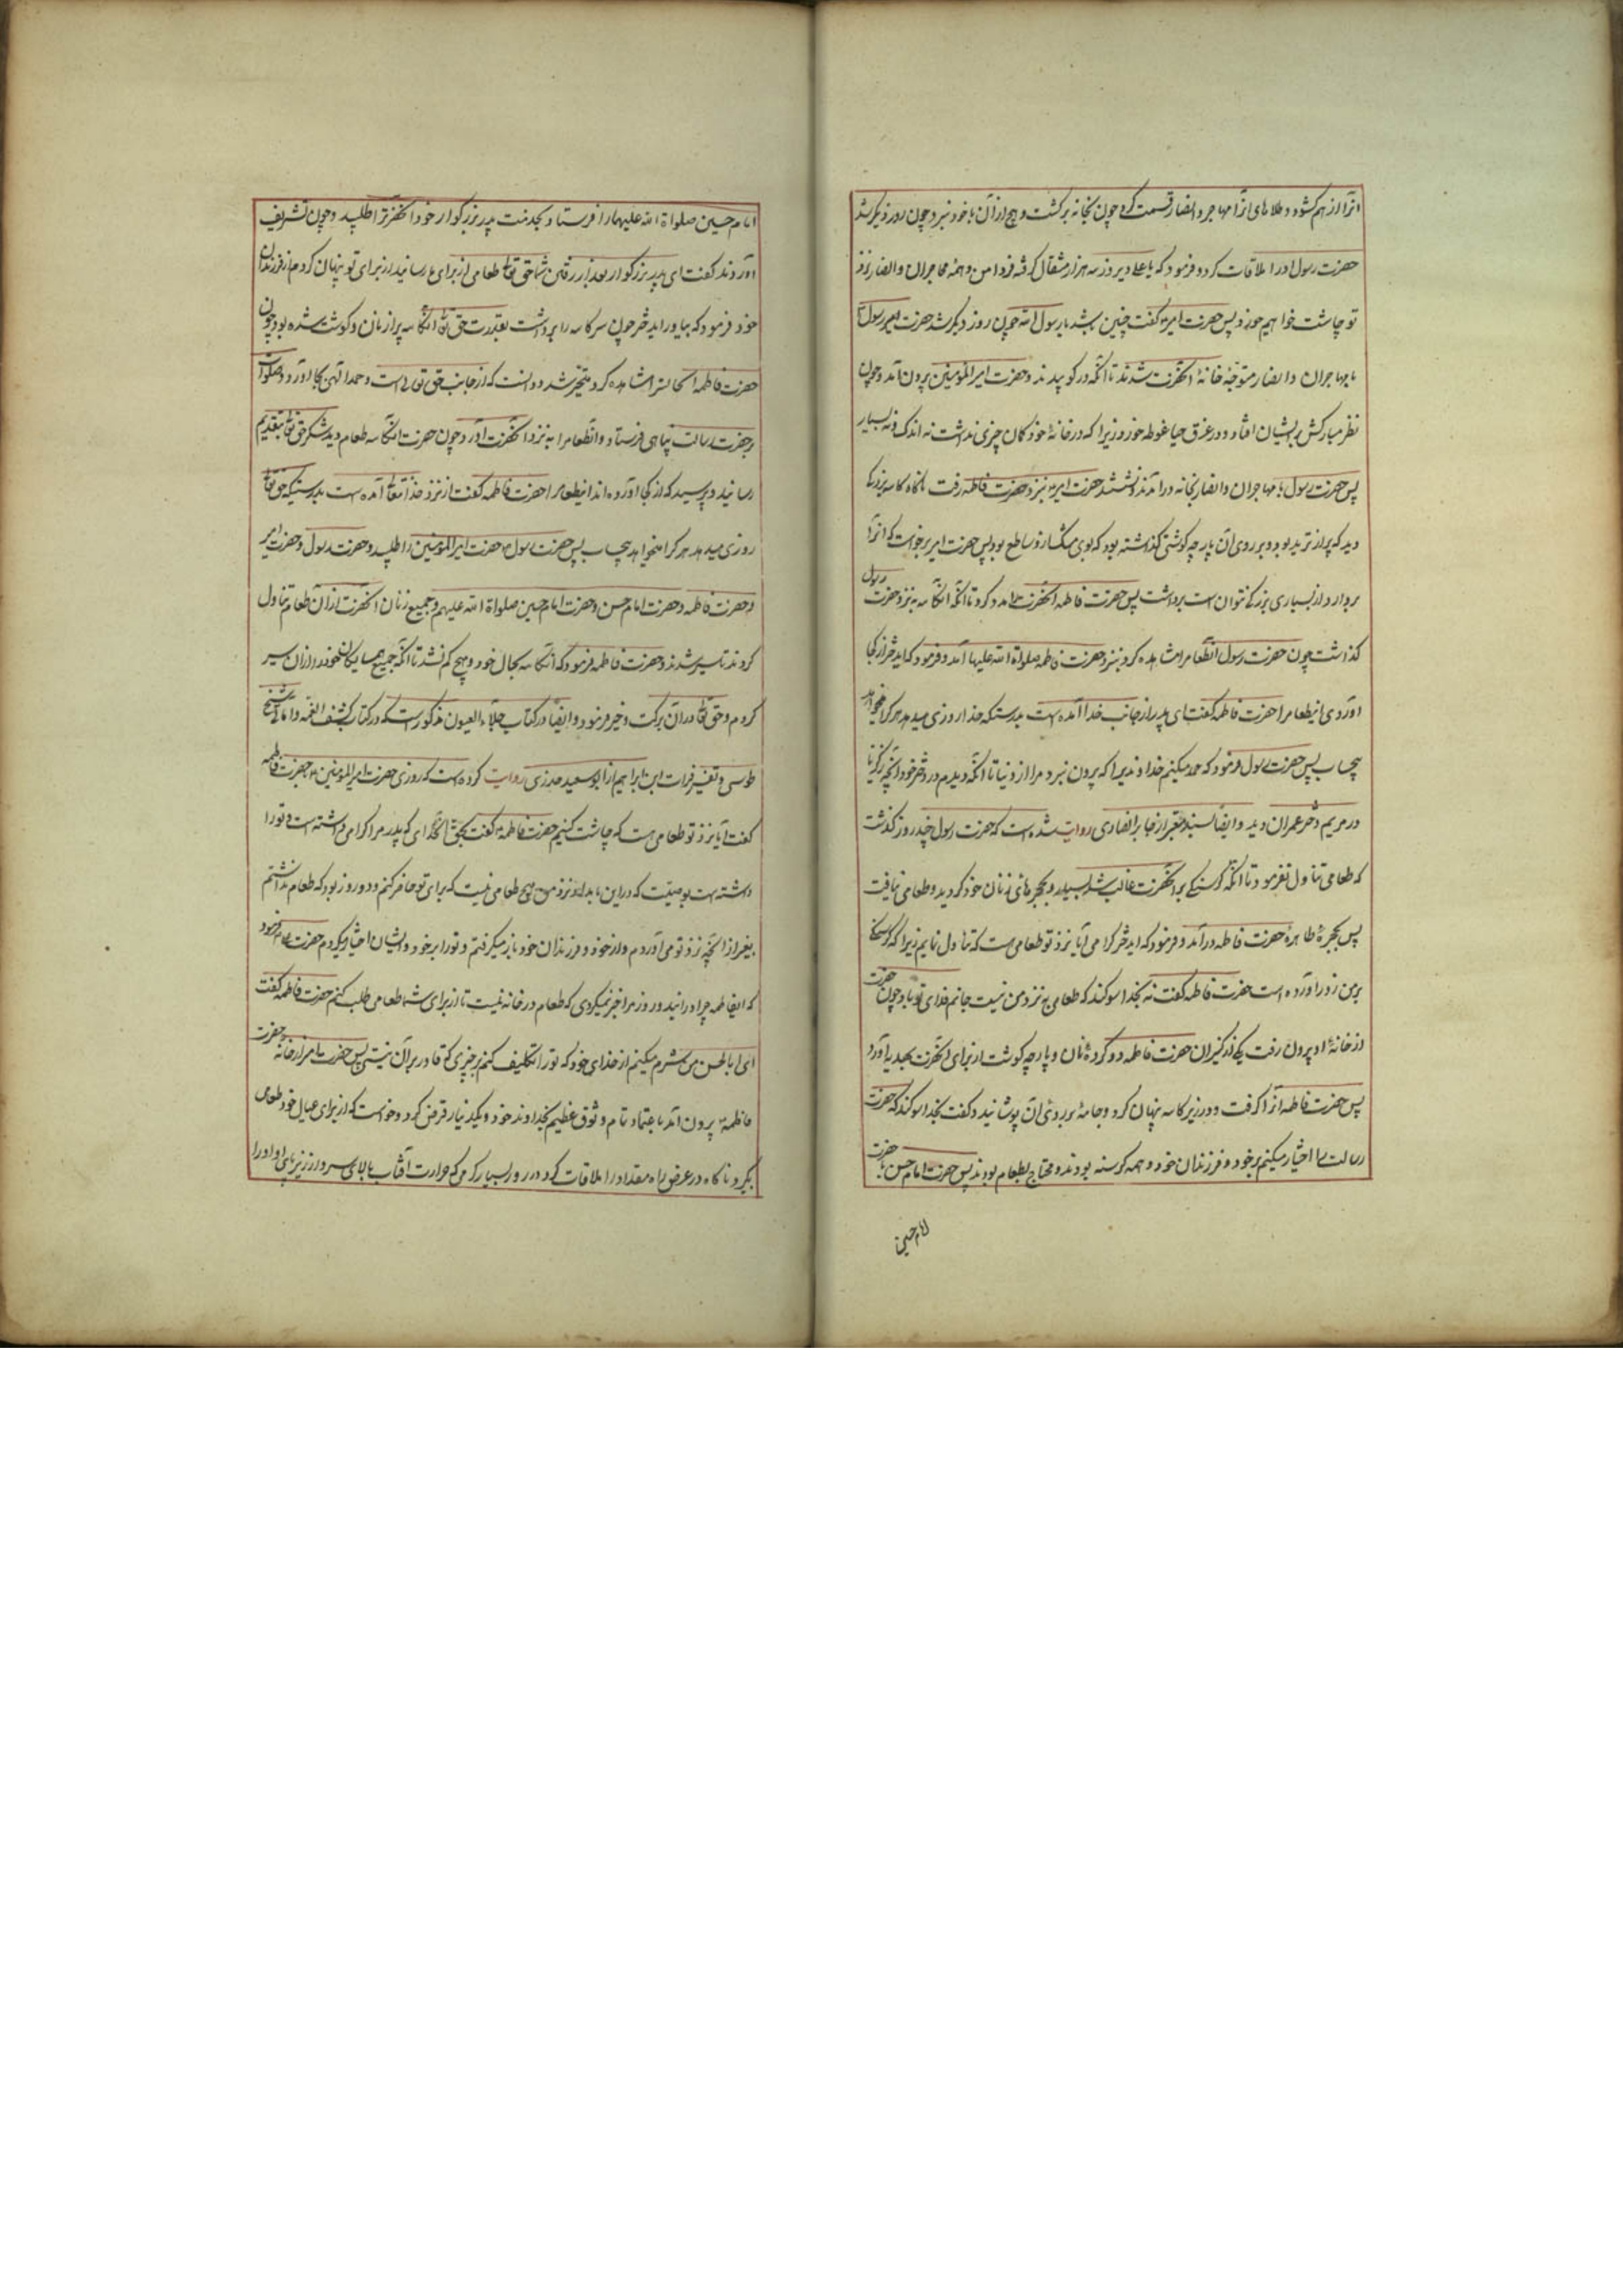 انرا از هم کشود و طلاهای انرا بمهاجر و انصار قسمت کرد چون بخانه برکشت و هیچ از آن با خود نبرد چون روز دیکر شد
حضرت رسول او را ملاقات کرد و فرمود که یا علی دیروز سه هزار مثقال کرفته فردا من و همه مهاجران و انصار نزد
تو چاشت خواهیم خورد پس حضرت امیر کفت چنین باشد یا رسول الله چون روز دیکر شد حضرت رسول
با مهاجران و انصار متوجه خانهٔ انحضرت شدند تا انکه در کوبیدند و حضرت امیرالمؤمنین بیرون آمد و چون
نظر مبارکش بر ایشان افتاد و در عرق حیا غوطه خورد زیرا که در خانهٔ خود کمان چیزی نداشت نه اندک و نه بسیار
پس حضرت رسول با مهاجران و انصار بخانه درآمدند و نشستند حضرت امیر بنزد حضرت فاطمه رفت ناکاه کاسه بزرکی
دید که پر از ترید بود و بر روی آن پارچه کوشتی کذاشته بود که بوی مشک از او ساطع بود پس حضرت امیر برخواست که انرا
بردارد از بسیاری بزرکی نتوانست برداشت پس حضرت فاطمه انحضرت را مدد کرد تا انکه انکاسه به نزد حضرت رسول
کذاشت چون حضرت رسول انطعام را مشاهده کرد بنزد حضرت فاطمه صلواة الله علیها آمد و فرمود که ایدختر از کجا
اوردی اینطعام را حضرت فاطمه کفت ای پدر از جانب خدا آمده است بدرستیکه خدا روزی میدهد هر کرا میخواهد
بیحساب پس حضرت رسول فرمود که حمد میکنم خداوندیرا که بیرون نبرد مرا از دنیا تا انکه دیدم در دختر خود انچه زکریا
در مریم دختر عمران دید و ایضا بسند معتبر از جابر انصاری روایت شده است که حضرت رسول چند روز کذشت
که طعامی تناول نفرمود تا انکه کرسنکی بر انحضرت غالب شد بسیار و بحجرهای زنان خود کردید و طعامی نیافت
پس بحجرهٔ طاهرهٔ حضرت فاطمه درآمد و فرمود که ایدختر کرامی آیا نزد تو طعامی است که تناول نمایم زیرا که کرسنکی
بر من زور اورده است حضرت فاطمه کفت نه بخدا سوکند که طعامی به نزد من نیست جانم فدای تو باد چون حضرت
از خانهٔ او بیرون رفت یکی از کنیزان حضرت فاطمه دو کردهٔ نان و پارچه کوشت از برای انحضرت بهدیه آورد
پس حضرت فاطمه آنرا کرفت و در زیر کاسه پنهان کرد و جامهٔ بر روی آن پوشانید و کفت بخدا سوکند که حضرت
رسالت را اختیار میکنم بر خود و فرزندان خود و همه کرسنه بودند و محتاج بطعام بودند پس حضرت امام حسن با حضرت
امام حسین
امام حسین صلواة الله علیهما را فرستاد و بخدمت پدر بزرکوار خود انحضرترا طلبید و چون تشریف
آوردند کفت ای پدر بزرکوار بعد از رفتن شما حق تعالی طعامی از برای ما رسانید از برای تو پنهان کردم از فرزندان
خود فرمود که بیاور ایدختر چون سر کاسه را برداشت بقدرت حق تعالی انکاسه پر از نان و کوشت شده بود چون
حضرت فاطمه انحالترا مشاهده کرد متحیر شد و دانست که از جانب حق تعالی است و حمد الهی بجا اورد و صلوات
بر حضرت رسالت پناهی فرستاد و انطعام را به نزد انحضرت آورد چون حضرت انکاسه طعام دید شکر حق تعالی بتقدیم
رسانید و پرسید که از کجا اورده اند اینطعام را حضرت فاطمه کفت از نزد خدا تعالی آمده است بدرستیکه حق تعالی
روزی میدهد هر کرا میخواهد بیحساب پس حضرت رسول حضرت امیرالمؤمنین را طلبید و حضرت رسول و حضرت امیر
و حضرت فاطمه و حضرت امام حسن و حضرت امام حسین صلواة الله علیهم و جمیع زنان انحضرت از آن طعام تناول
کردند تا سیر شدند و حضرت فاطمه فرمود که انکاسه بحال خود بود و هیچ کم نشد تا انکه جمیع همسایکان خود را از آن سیر
کردم و حق تعالی در آن برکت و خیر فرمود و ایضا در کتاب جلاء العیون مذکور است که در کتاب کشف الغمه و امالی شیخ
طوسی و تفسیر فرات ابن ابراهیم از ابو سعید خدری روایت کرده است که روزی حضرت امیرالمؤمنین بحضرت فاطمه
کفت آیا نزد تو طعامی هست که چاشت کنیم حضرت فاطمه کفت بحق انخدای که پدر مرا کرامی داشته است و تو را
داشته است بوصیت که در این بامداد نزد من هیچ طعامی نیست که برای تو حاضر کنم و دو روز بود که طعام نداشتم
بغیر از انچه نزد تو می آوردم و از خود و فرزندان خود باز میکرفتم و تو را بر خود و ایشان اختیار میکردم حضرت فرمود
که ایفاطمه چرا در ایندو روز مرا خبر نمیکردی که طعام در خانه نیست تا از برای شما طعامی طلب کنم حضرت فاطمه کفت
ای ابالحسن من شرم میکنم از خدای خود که تو را تکلیف کنم بر چیزی که قادر بر آن نیستی پس حضرت امیر از خانه حضرت
فاطمه بیرون آمد با عتماد تام و وثوق عظیم بخداوند خود و یکدینار قرض کرد و خواست که از برای عیال خود طعامی
بکیرد ناکاه در عرض راه مقداد را ملاقات کرد در روز بسیار کرمی که حرارت آفتاب بالای سر و از زیر پای او او را